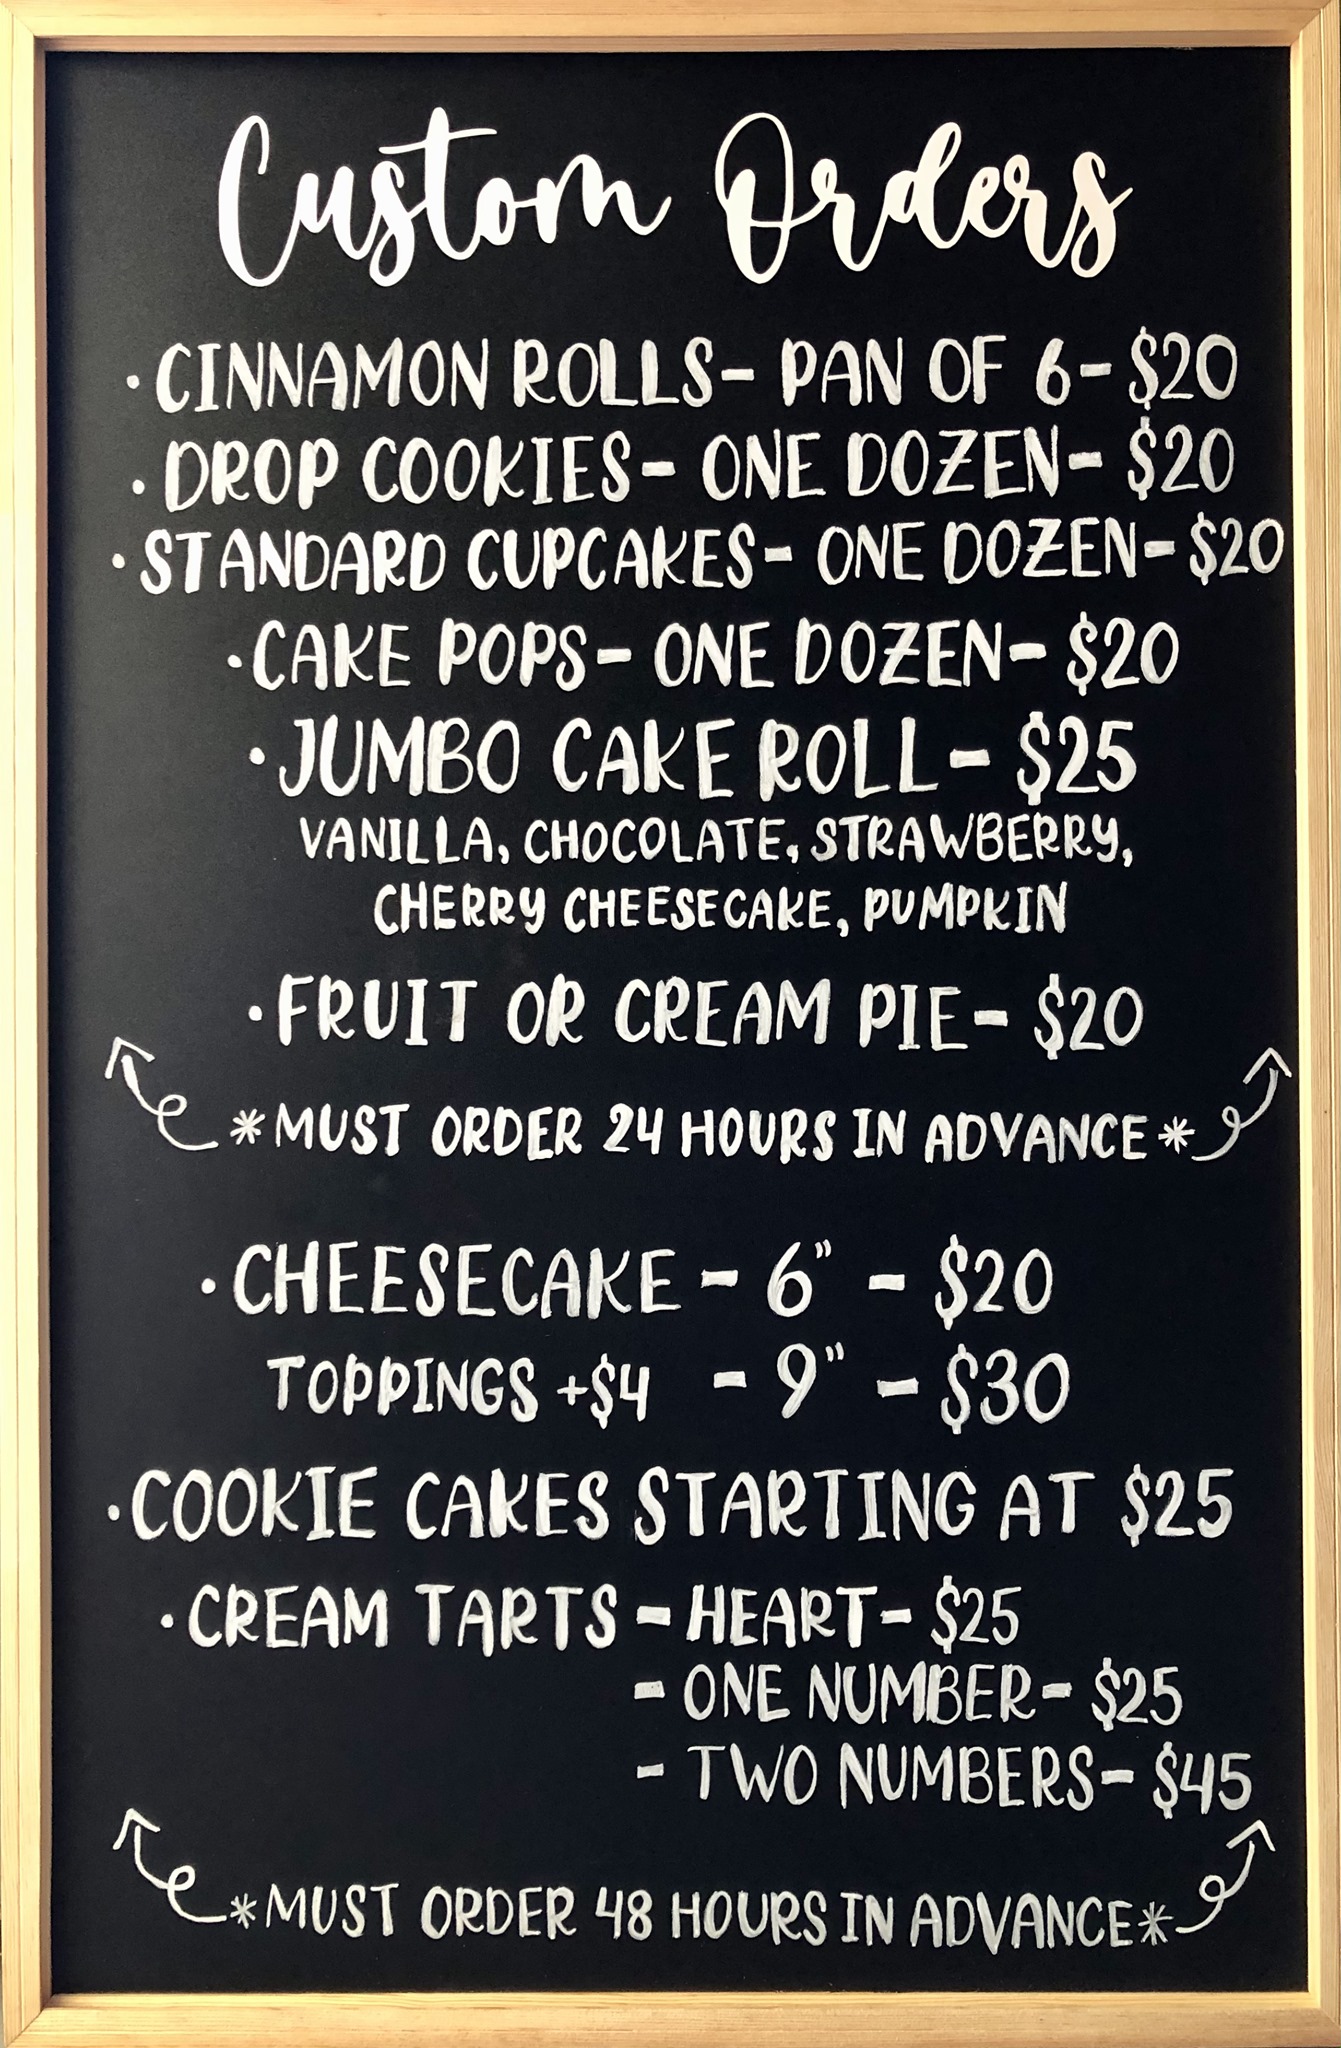 Custom Orders
· CINNAMON ROLLS - PAN OF 6 - $20
· DROP COOKIES - ONE DOZEN - $20
· STANDARD CUPCAKES - ONE DOZEN - $20
· CAKE POPS - ONE DOZEN - $20
· JUMBO CAKE ROLL - $25
VANILLA, CHOCOLATE, STRAWBERRY,
CHERRY CHEESECAKE, PUMPKIN
· FRUIT OR CREAM PIE - $20
*MUST ORDER 24 HOURS IN ADVANCE*
· CHEESECAKE - 6" - $20
TOPPINGS +$4 - 9" - $30
· COOKIE CAKES STARTING AT $25
· CREAM TARTS - HEART - $25
- ONE NUMBER - $25
- TWO NUMBERS - $45
*MUST ORDER 48 HOURS IN ADVANCE*